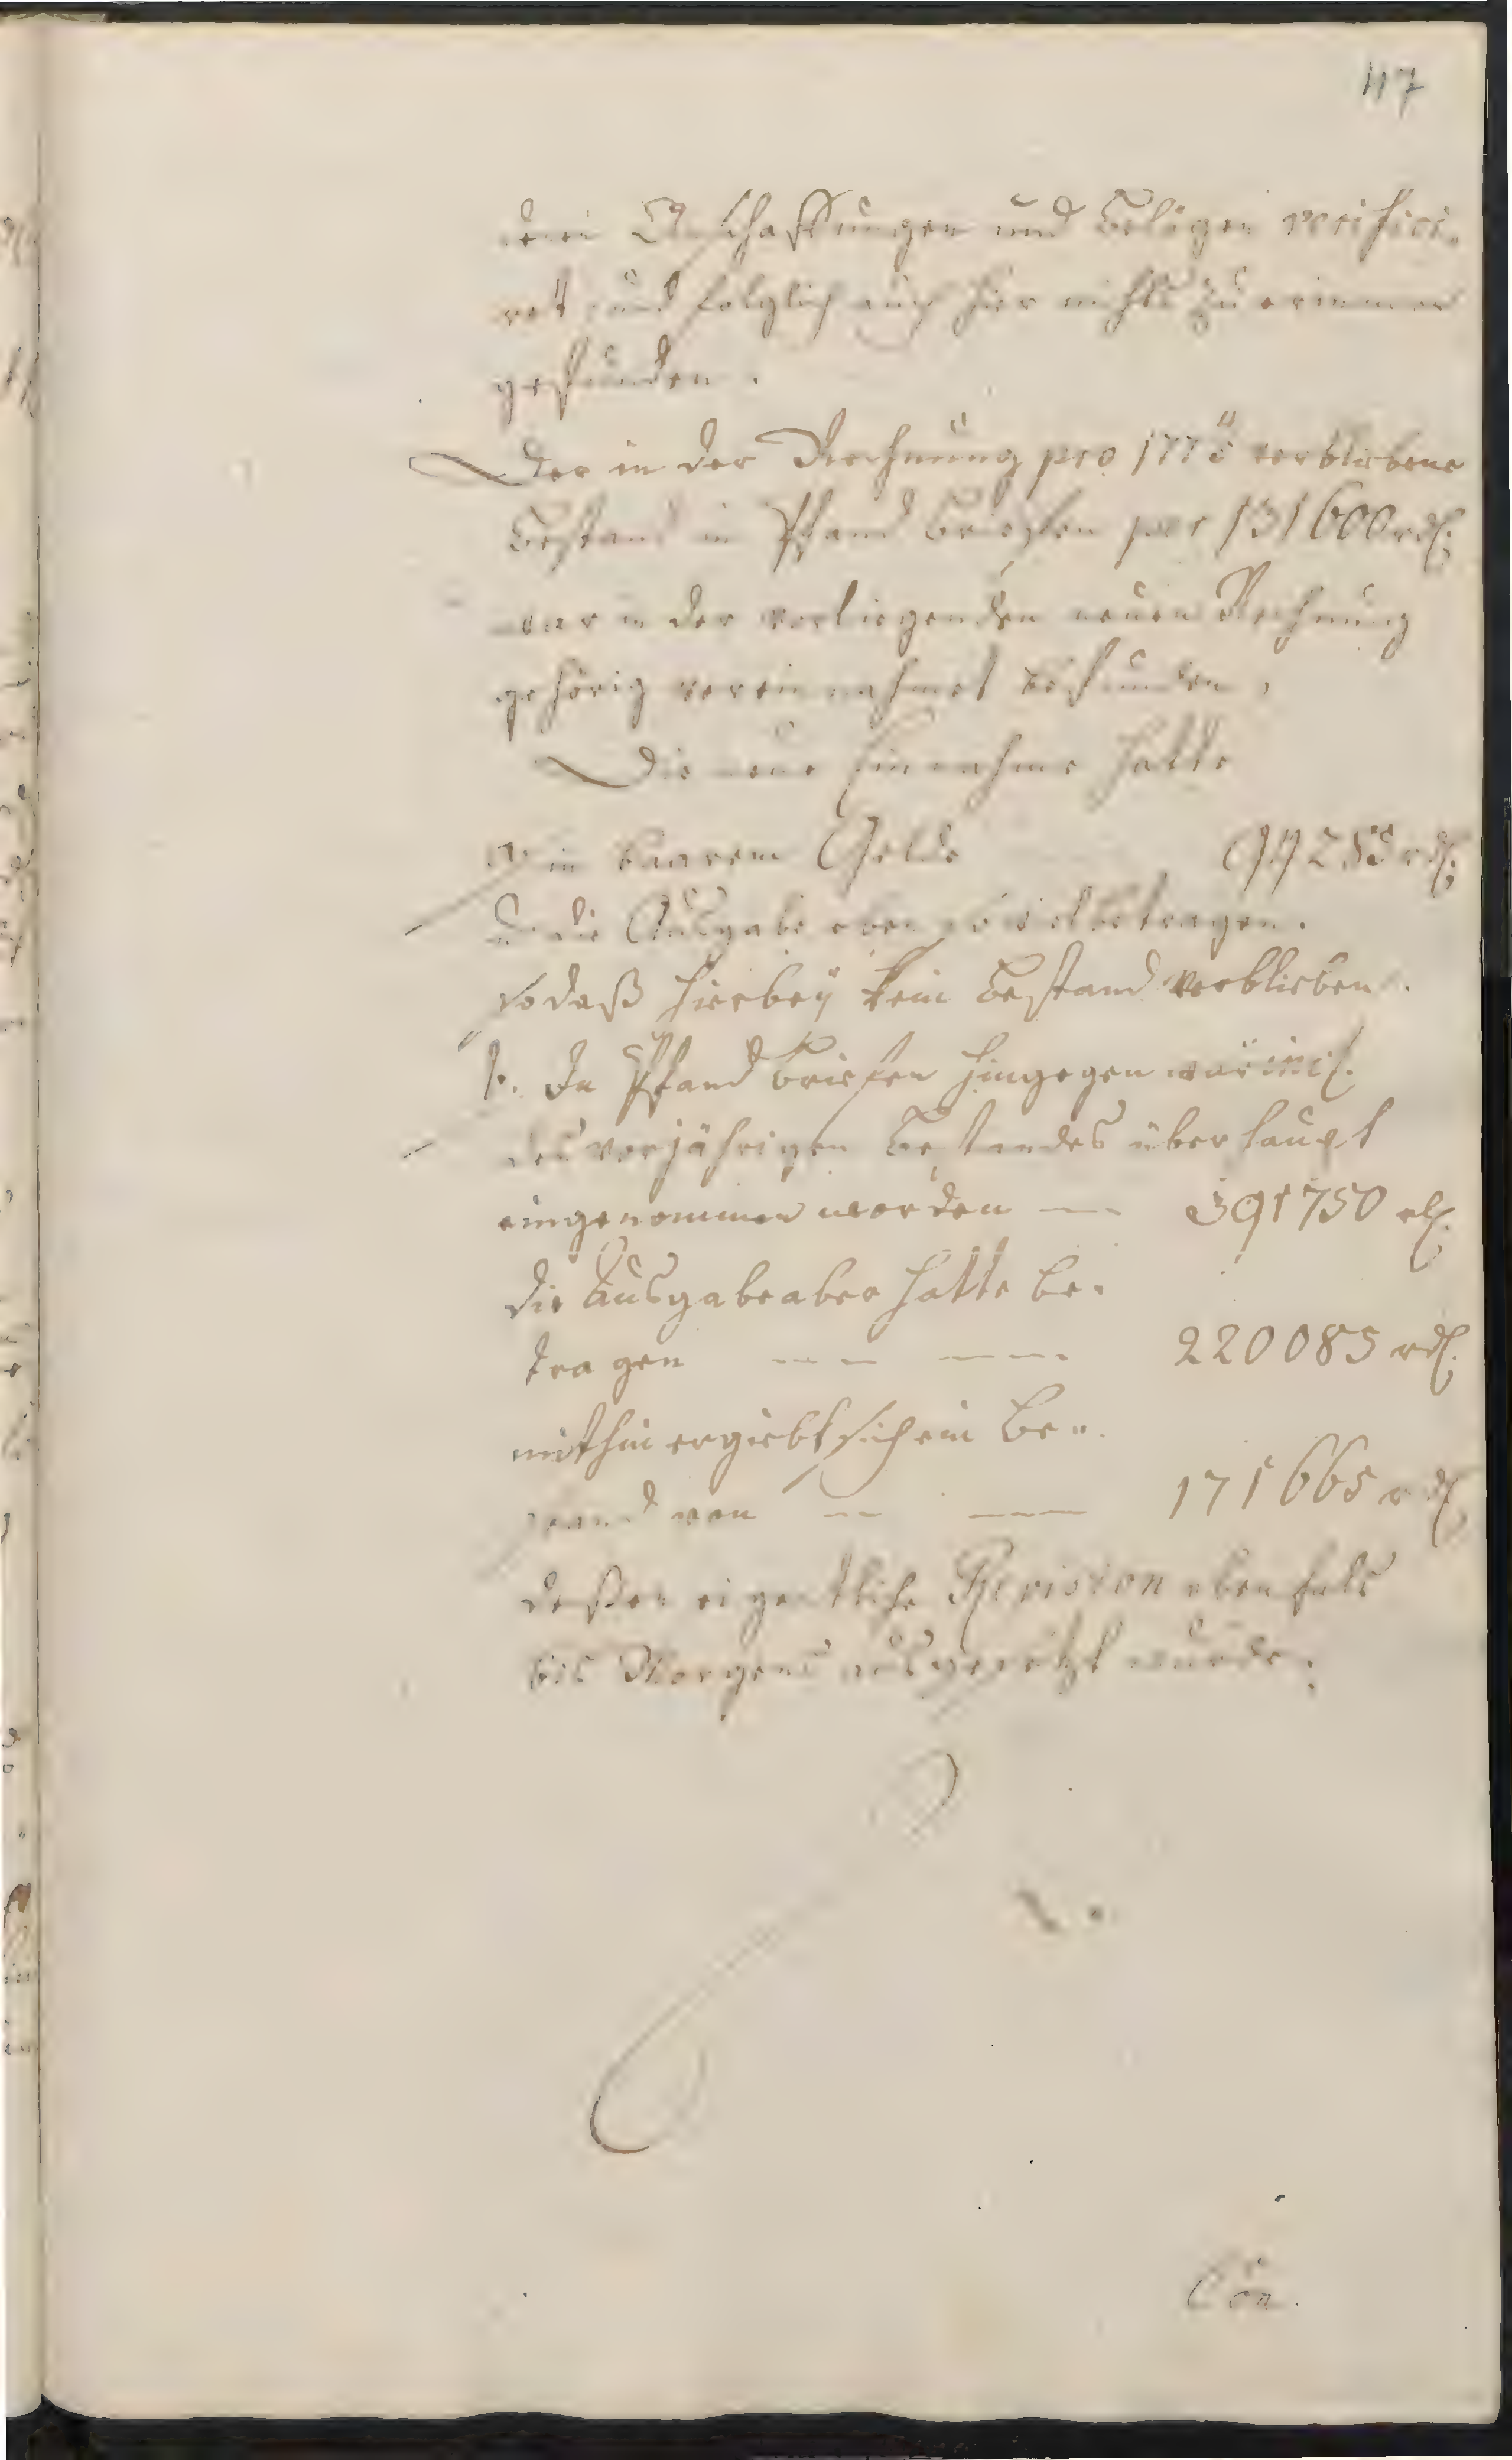 117
denen Anschaffungen und Belägen verifici-
ret und folglich auch hier nichts zu erinnern
gefunden.
Der in der Rechnung pro 177 verbliebene
Bestand in Pfand Briefen per 131600 rdl.
war in der vorliegenden neuen Rechnung
gehörig vereinnahmet befunden,
Die neue Einnahme hatte
a. in baarem Gelde
die Ausgabe eben so viel betragen.
so daß hierbey kein Bestand verblieben.
b. In Pfand Briefen hingegen war incl.
des vorjährigen Bestandes überhaupt
eingenommen worden — 391750 rdl.
die Ausgabe aber hatte be-
tragen — — 220085 rdl.
mithin ergiebt sich ein Be-
stand von — — 171665 rdl.
deßen eigentliche Revision ebenfals
bis Morgens ausgesetzt wurde.
Con.